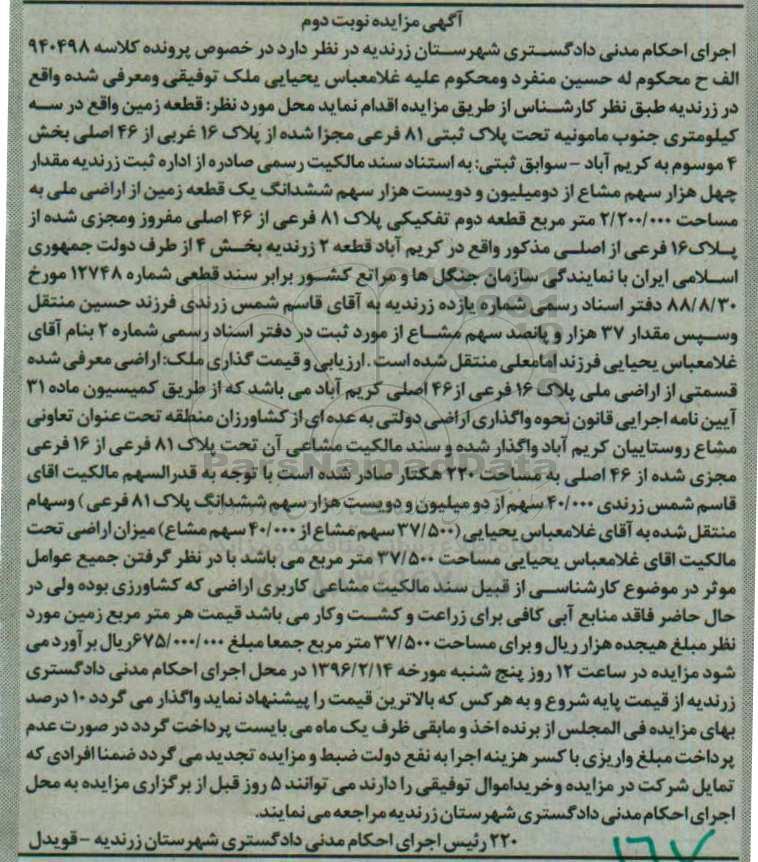 آگهی مزایده نوبت دوم
اجرای احکام مدنی دادگستری شهرستان زرندیه در نظر دارد در خصوص پرونده کلاسه ۹۴۰۴۹۸
الف ح محکوم له حسین منفرد ومحکوم علیه غلامعباس یحیایی ملک توقیفی ومعرفی شده واقع
در زرندیه طبق نظر کارشناس از طریق مزایده اقدام نماید محل مورد نظر: قطعه زمین واقع در سه
کیلومتری جنوب مامونیه تحت پلاک ثبتی ۸۱ فرعی مجزا شده از پلاک ۱۶ غربی از ۴۶ اصلی بخش
۴ موسوم به کریم آباد - سوابق ثبتی: به استناد سند مالکیت رسمی صادره از اداره ثبت زرندیه مقدار
چهل هزار سهم مشاع از دومیلیون و دویست هزار سهم ششدانگ یک قطعه زمین از اراضی ملی به
مساحت ۲/۲۰۰/۰۰۰ متر مربع قطعه دوم تفکیکی پلاک ۸۱ فرعی از ۴۶ اصلی مفروز ومجزی شده از
پلاک۱۶ فرعی از اصلی مذکور واقع در کریم آباد قطعه ۲ زرندیه بخش ۴ از طرف دولت جمهوری
اسلامی ایران با نمایندگی سازمان جنگل ها و مراتع کشور برابر سند قطعی شماره ۱۲۷۴۸ مورخ
۸۸/۸/۳۰ دفتر اسناد رسمی شماره یازده زرندیه به آقای قاسم شمس زرندی فرزند حسین منتقل
وسپس مقدار ۳۷ هزار و پانصد سهم مشاع از مورد ثبت در دفتر اسناد رسمی شماره ۲ بنام آقای
غلامعباس یحیایی فرزند امامعلی منتقل شده است . ارزیابی و قیمت گذاری ملک: اراضی معرفی شده
قسمتی از اراضی ملی پلاک ۱۶ فرعی از۴۶ اصلی کریم آباد می باشد که از طریق کمیسیون ماده ۳۱
آیین نامه اجرایی قانون نحوه واگذاری اراضی دولتی به عده ای از کشاورزان منطقه تحت عنوان تعاونی
مشاع روستاییان کریم آباد واگذار شده و سند مالکیت مشاعی آن تحت پلاک ۸۱ فرعی از ۱۶ فرعی
مجزی شده از ۴۶ اصلی به مساحت ۲۲۰ هکتار صادر شده است با توجه به قدرالسهم مالکیت اقای
قاسم شمس زرندی ۴۰/۰۰۰ سهم از دو میلیون و دویست هزار سهم ششدانگ پلاک ۸۱ فرعی ) وسهام
منتقل شده به آقای غلامعباس یحیایی (۳۷/۵۰۰ سهم مشاع از ۴۰/۰۰۰ سهم مشاع) میزان اراضی تحت
مالکیت اقای غلامعباس یحیایی مساحت ۳۷/۵۰۰ متر مربع می باشد با در نظر گرفتن جمیع عوامل
موثر در موضوع کارشناسی از قبیل سند مالکیت مشاعی کاربری اراضی که کشاورزی بوده ولی در
حال حاضر فاقد منابع آبی کافی برای زراعت و کشت وکار می باشد قیمت هر متر مربع زمین مورد
نظر مبلغ هیجده هزار ریال و برای مساحت ۳۷/۵۰۰ متر مربع جمعا مبلغ ۶۷۵/۰۰۰/۰۰۰ریال برآورد می
شود مزایده در ساعت ۱۲ روز پنج شنبه مورخه ۱۳۹۶/۲/۱۴ در محل اجرای احکام مدنی دادگستری
زرندیه از قیمت پایه شروع و به هرکس که بالاترین قیمت را پیشنهاد نماید واگذار می گردد ۱۰ درصد
بهای مزایده فی المجلس از برنده اخذ و مابقی ظرف یک ماه می بایست پرداخت گردد در صورت عدم
پرداخت مبلغ واریزی با کسر هزینه اجرا به نفع دولت ضبط و مزایده تجدید می گردد ضمنا افرادی که
تمایل شرکت در مزایده وخریداموال توقیفی را دارند می توانند ۵ روز قبل از برگزاری مزایده به محل
اجرای احکام مدنی دادگستری شهرستان زرندیه مراجعه می نمایند.
۲۲۰ رئیس اجرای احکام مدنی دادگستری شهرستان زرندیه - قویدل
۱۶۷
ParsNamadData